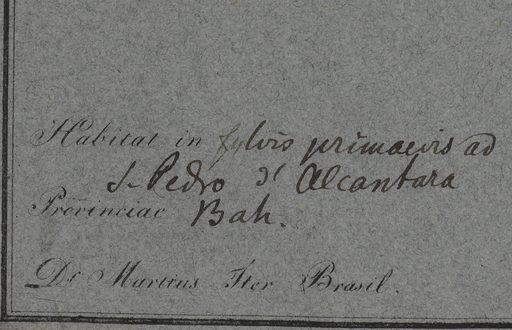 Habitat in sylvis primaevis ad
S. Pedro d' Alcantara
Provinciae Bah.
Dr Martius Iter Brasil.